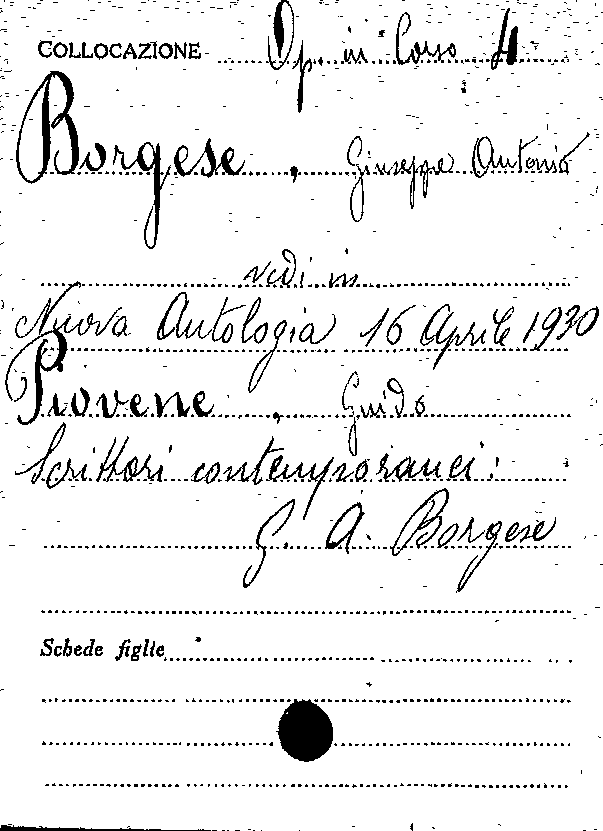 COLLOCAZIONE Op. in Corso 4
Borgese, Giuseppe Antonio
vedi in
Nuova Antologia 16 Aprile 1930
Piovene, Guido
Scrittori contemporanei:
G. A. Borgese
Schede figlie